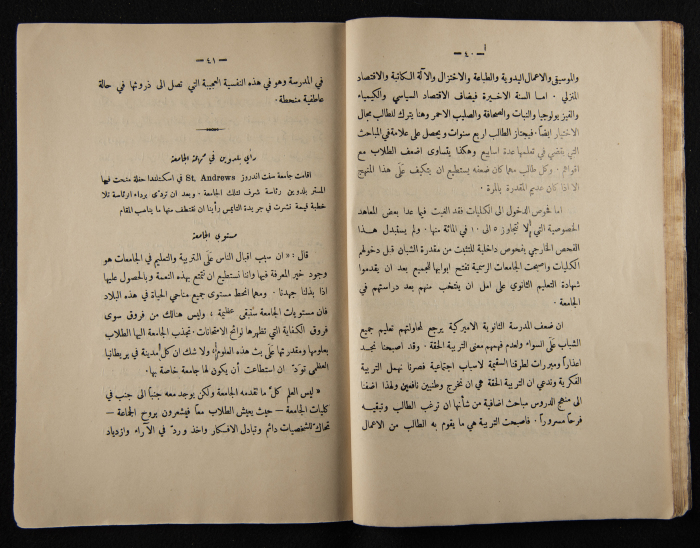 — ٤٠ —
والموسيقى والاعمال اليدوية والطباعة والاختزال والآلة الكاتبة والاقتصاد
المنزلي . اما السنة الاخيرة فيضاف الاقتصاد السياسي والكيمياء
والفيزيولوجيا والنبات والصحافة والصليب الاحمر وهنا يترك للطالب مجال
الاختيار ايضاً . فيجتاز الطالب اربع سنوات ويحصل على علامة في المباحث
التي يقضي في تعلمها عدة اسابيع وهكذا يتساوى اضعف الطلاب مع
اقواهم . وكل طالب مهما كان ضعفه يستطيع ان يتكيف على هذا المنهج
الا اذا كان عديم المقدرة بالمرة .
اما فحوص الدخول الى الكليات فقد الغيت فيما عدا بعض المعاهد
الخصوصية التي لا تتجاوز ٥ الى ١٠ في المائة منها . ولم يستبدل هذا
الفحص الخارجي بفحوص داخلية للتثبت من مقدرة الشبان قبل دخولهم
الكليات واصبحت الجامعات الرسمية تفتح ابوابها للجميع بعد ان يقدموا
شهادة التعليم الثانوي على امل ان ينتخب منهم بعد دراستهم في
الجامعة .
ان ضعف المدرسة الثانوية الاميركية يرجع لمحاولتهم تعليم جميع
الشباب على السواء ولعدم فهمهم معنى التربية الحقة . وقد اصبحنا نجد
اعذاراً ومبررات لطرقنا السقيمة لاسباب اجتماعية فصرنا نهمل التربية
الفكرية وندعي ان التربية الحقة هي ان نخرج وطنيين نافعين ولهذا اضفنا
الى منهج الدروس مباحث اضافية من شأنها ان ترغب الطالب وتبقيه
فرحاً مسروراً . فاصبحت التربية هي ما يقوم به الطالب من الاعمال
— ٤١ —
في المدرسة وهو في هذه النفسية العجيبة التي تصل الى ذروتها في حالة
عاطفية منحطة .
رأي بلدوين في مهمة الجامعة
اقامت جامعة سنت اندروز St. Andrews في اسكتلندا حفلة منحت فيها
المستر بلدوين رئاسة شرف لتلك الجامعة . وبعد ان تردى برداء الرئاسة تلا
خطبة قيمة نشرت في جريدة التايمس رأينا ان نقتطف منها ما يناسب المقام
مستوى الجامعة
قال : « ان سبب اقبال الناس على التربية والتعليم في الجامعات هو
وجود خير المعرفة فيها واننا نستطيع ان نتمتع بهذه النعمة وبالحصول عليها
اذا بذلنا جهدنا . ومهما انحط مستوى جميع مناحي الحياة في هذه البلاد
فان مستويات الجامعة ستبقى عظيمة ، وليس هنالك من فروق سوى
فروق الكفاية التي تظهرها نوائح الامتحانات . تجذب الجامعة اليها الطلاب
بعلومها ومقدرتها على بث هذه العلوم ولا شك ان كل مدينة في بريطانيا
العظمى تود ان استطاعت أن يكون لها جامعة خاصة بها .
« ليس العلم كل ما تقدمه الجامعة ولكن يوجد معه جنباً الى جنب في
كليات الجامعة — حيث يعيش الطلاب معاً فيشعرون بروح الجماعة —
تحاك للشخصيات دائم وتبادل الافكار واخذ ورد في الآراء وازدياد